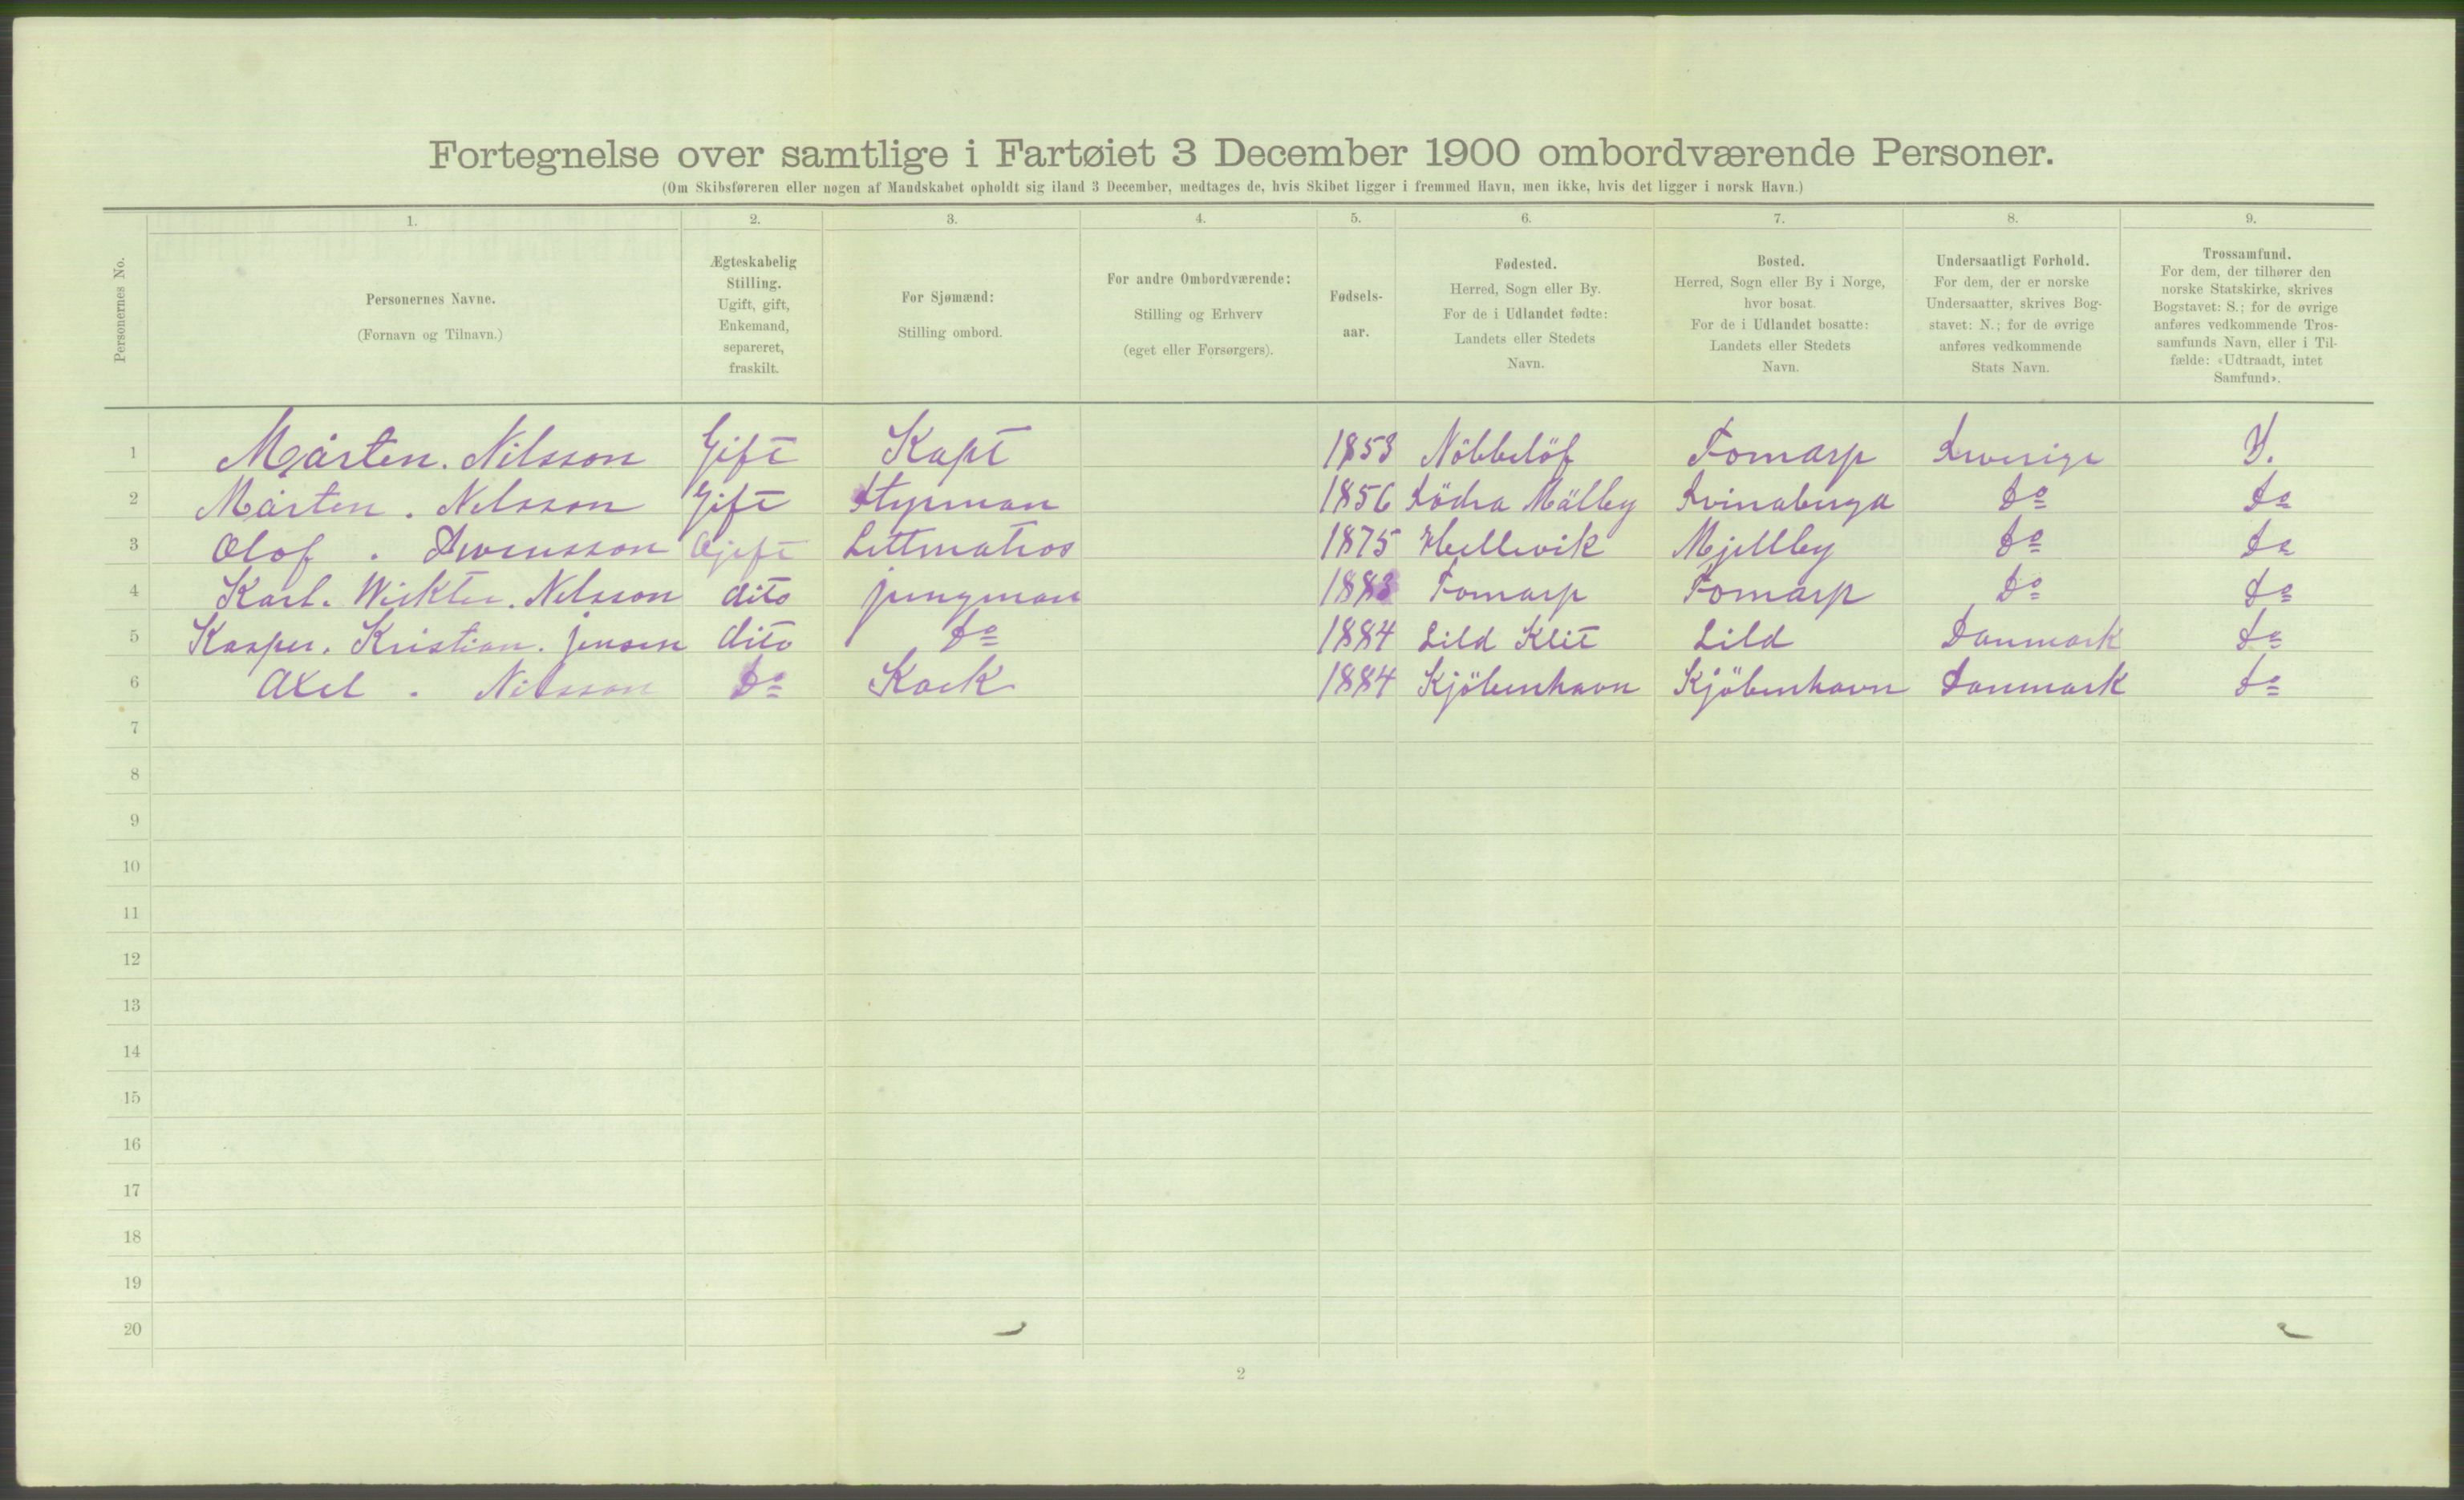 Fortegnelse over samtlige i Fartøiet 3 December 1900 ombordværende Personer.
(Om Skibsføreren eller nogen af Mandskabet opholdt sig iland 3 December, medtages de, hvis Skibet ligger i fremmed Havn, men ikke, hvis det ligger i norsk Havn.)
Personernes No.
1. 2. 3. 4. 5. 6. 7. 8. 9.
Personernes Navne.
(Fornavn og Tilnavn.)
Ægteskabelig
Stilling.
Ugift, gift,
Enkemand,
separeret,
fraskilt.
For Sjømænd:
Stilling ombord.
For andre Ombordværende:
Stilling og Erhverv
(eget eller Forsørgers).
Fødsels-
aar.
Fødested.
Herred, Sogn eller By.
For de i Udlandet fødte:
Landets eller Stedets
Navn.
Bosted.
Herred, Sogn eller By i Norge,
hvor bosat.
For de i Udlandet bosatte:
Landets eller Stedets
Navn.
Undersaatligt Forhold.
For dem, der er norske
Undersaatter, skrives Bog-
stavet: N.; for de øvrige
anføres vedkommende
Stats Navn.
Trossamfund.
For dem, der tilhører den
norske Statskirke, skrives
Bogstavet: S.; for de øvrige
anføres vedkommende Tros-
samfunds Navn, eller i Til-
fælde: «Udtraadt, intet
Samfund».
1 Mårten. Nilsson Gift Kapt 1853 Nöbbelöf Tomarp Swerige
2 Mårten. Nilsson Gift Styrman 1856 Södra Mälby Svinaberga Do Do
3 Olof. Swensson Ogift Lettmatros 1875 Hellevik Mjellby Do Do
4 Karl. Wicktor. Nilsson dito jungman 1883 Tomarp Tomarp Do Do
5 Kasper. Kristian. Jensen dito Do 1884 Lild Klit Lild Danmark Do
6 Axel. Nilsson Do Kock 1884 Kjöbenhavn Kjöbenhavn Danmark Do
7
8
9
10
11
12
13
14
15
16
17
18
19
20
2